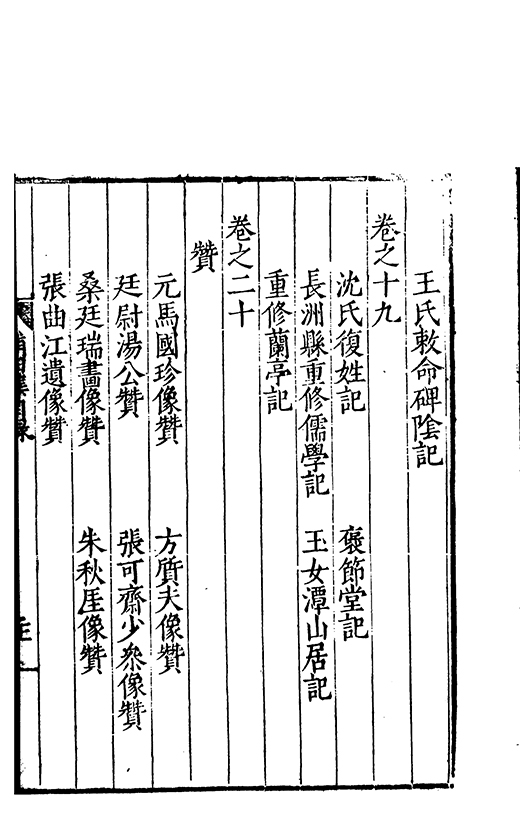 王氏敕命碑陰記
卷之十九
沈氏復姓記　褒節堂記
長洲縣重修儒學記　玉女潭山居記
重修蘭亭記
卷之二十
贊
元馬國珍像贊　方質夫像贊
廷尉湯公贊　張可齋少叅像贊
桑廷瑞畫像贊　朱秋厓像贊
張曲江遺像贊